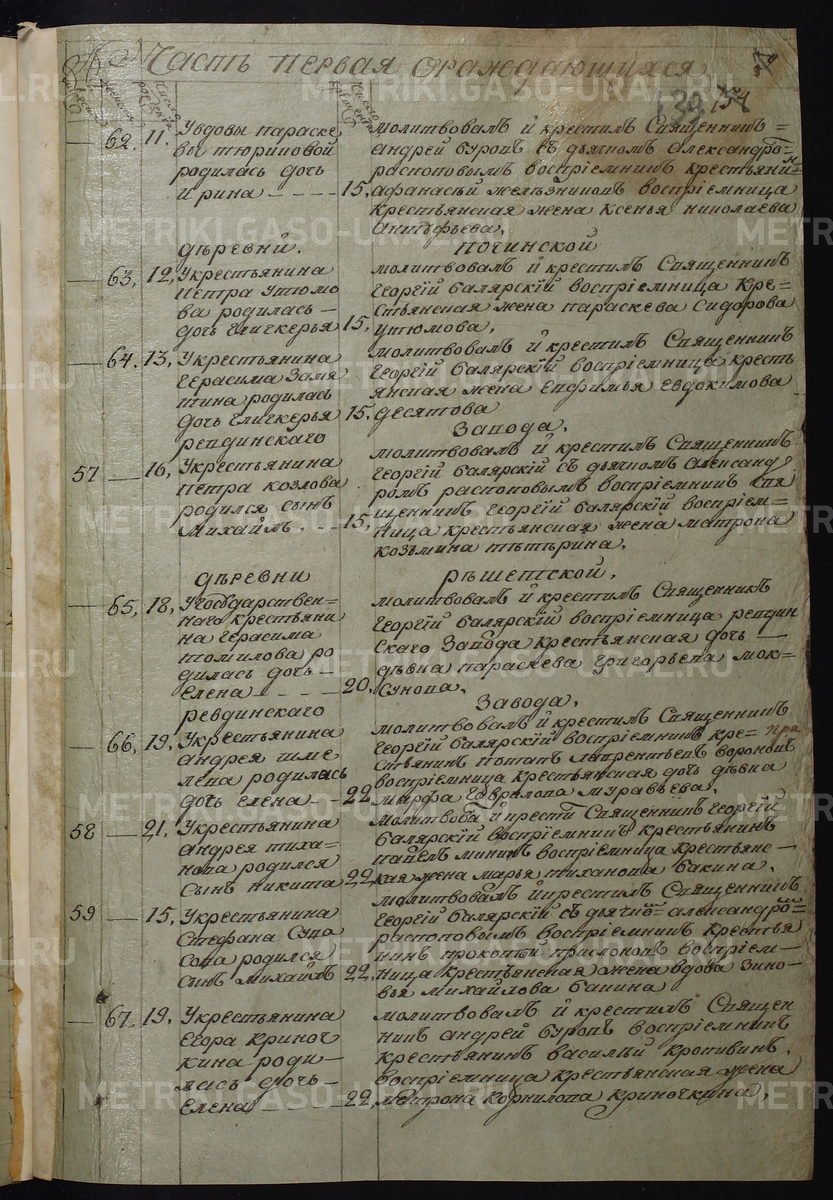 Часть первая ораждающихся
139 154
62. 11. Увдовы параске
вы тюриновой
родилась дочь
ирина 15.
молитвовалъ и крестилъ Священникъ =
андрей буровъ съ дьячкомъ Александро=
распоповымъ воспрiемникъ крестьяни=
афанасьй желѣзниковъ воспрiемница
крестьянская жена Ксенья николаева
деревни. починской
63, 12, Укрестьянина
петра утюмо
ва родилась
дочь гликкерья 15.
молитвовалъ и крестилъ Священникъ
георгiй балярскiй воспрiемница кре=
стьянская жена параскева Сидорова
утюмова,
64. 13, Укрестьянина
герасима Замя
тина родилась
дочь гликкерья 15.
молитвовалъ и крестилъ Священникъ
георгiй балярскiй воспрiемница кресть
янская жена епфимья евдокимова
десятова
ревдинскаго Завода.
57 16, Укрестьянина
петра козлова
родился сынъ
михайлъ. 15,
молитвовалъ и крестилъ Священникъ
георгiй балярскiй съ дьячкомъ александ
ромъ распоповымъ воспрiемникъ свя
щенникъ георгiй балярскiй воспрiем=
ница крестьянская жена матрона
козьмина тѣтѣрина.
дѣревни рѣшетской.
65, 18, Угосударствен=
наго крестьяни
на герасима
томилова ро
дилась дочь
елена 20.
молитвовалъ и крестилъ Священникъ
георгiй балярскiй воспрiемница ревдин
скаго Завода крестьянская дочь
дѣвка параскева григорьева мок=
ревдинскаго Завода,
66, 19, Укрестьянина
андрея шме
лева родилась
дочь елена 22
молитвовалъ и крестилъ Священникъ
георгiй балярскiй воспрiемникъ кре=
стьянинъ потапъ лаврентьевъ
воспрiемница крестьянская дочь дѣвка
марфа гаврилова муравьева.
58 21. Укрестьянина
андрея тиха=
нова родился
Сынъ никита 22,
Священникъ георгiй
балярскiй воспрiемникъ крестьянинъ
павелъ мининъ воспрiемница крестьянс
кая жена марья тиханова бакина.
59 15. Укрестьянина
Стефана
родился
сынъ михайлъ 22.
молитвовалъ икрестилъ Священникъ
георгiй балярскiй съ александро=
распоповымъ воспрiемникъ крестья
нинъ прокопiй воспрiем
ница крестьянская жена вдова зино=
вья михайлова бакина
67. 19. Укрестьянина
егора криноч
кина роди
лась дочь
елена 22
молитвовалъ и крестилъ Священ
никъ андрей буровъ воспрiемникъ
крестьянинъ василiй кропивинъ.
воспрiемница крестьянская жена
матрона корнилова криночкина,
METRIKI.GASO-URAL.RU